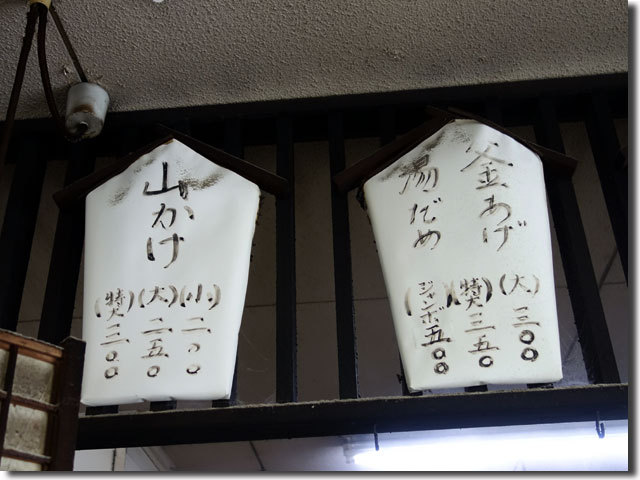 釜あげ
湯だめ
(大)三〇〇
(特大)三五〇
(ジャンボ)五〇〇
山かけ
(小)二〇〇
(大)二五〇
(特大)三〇〇